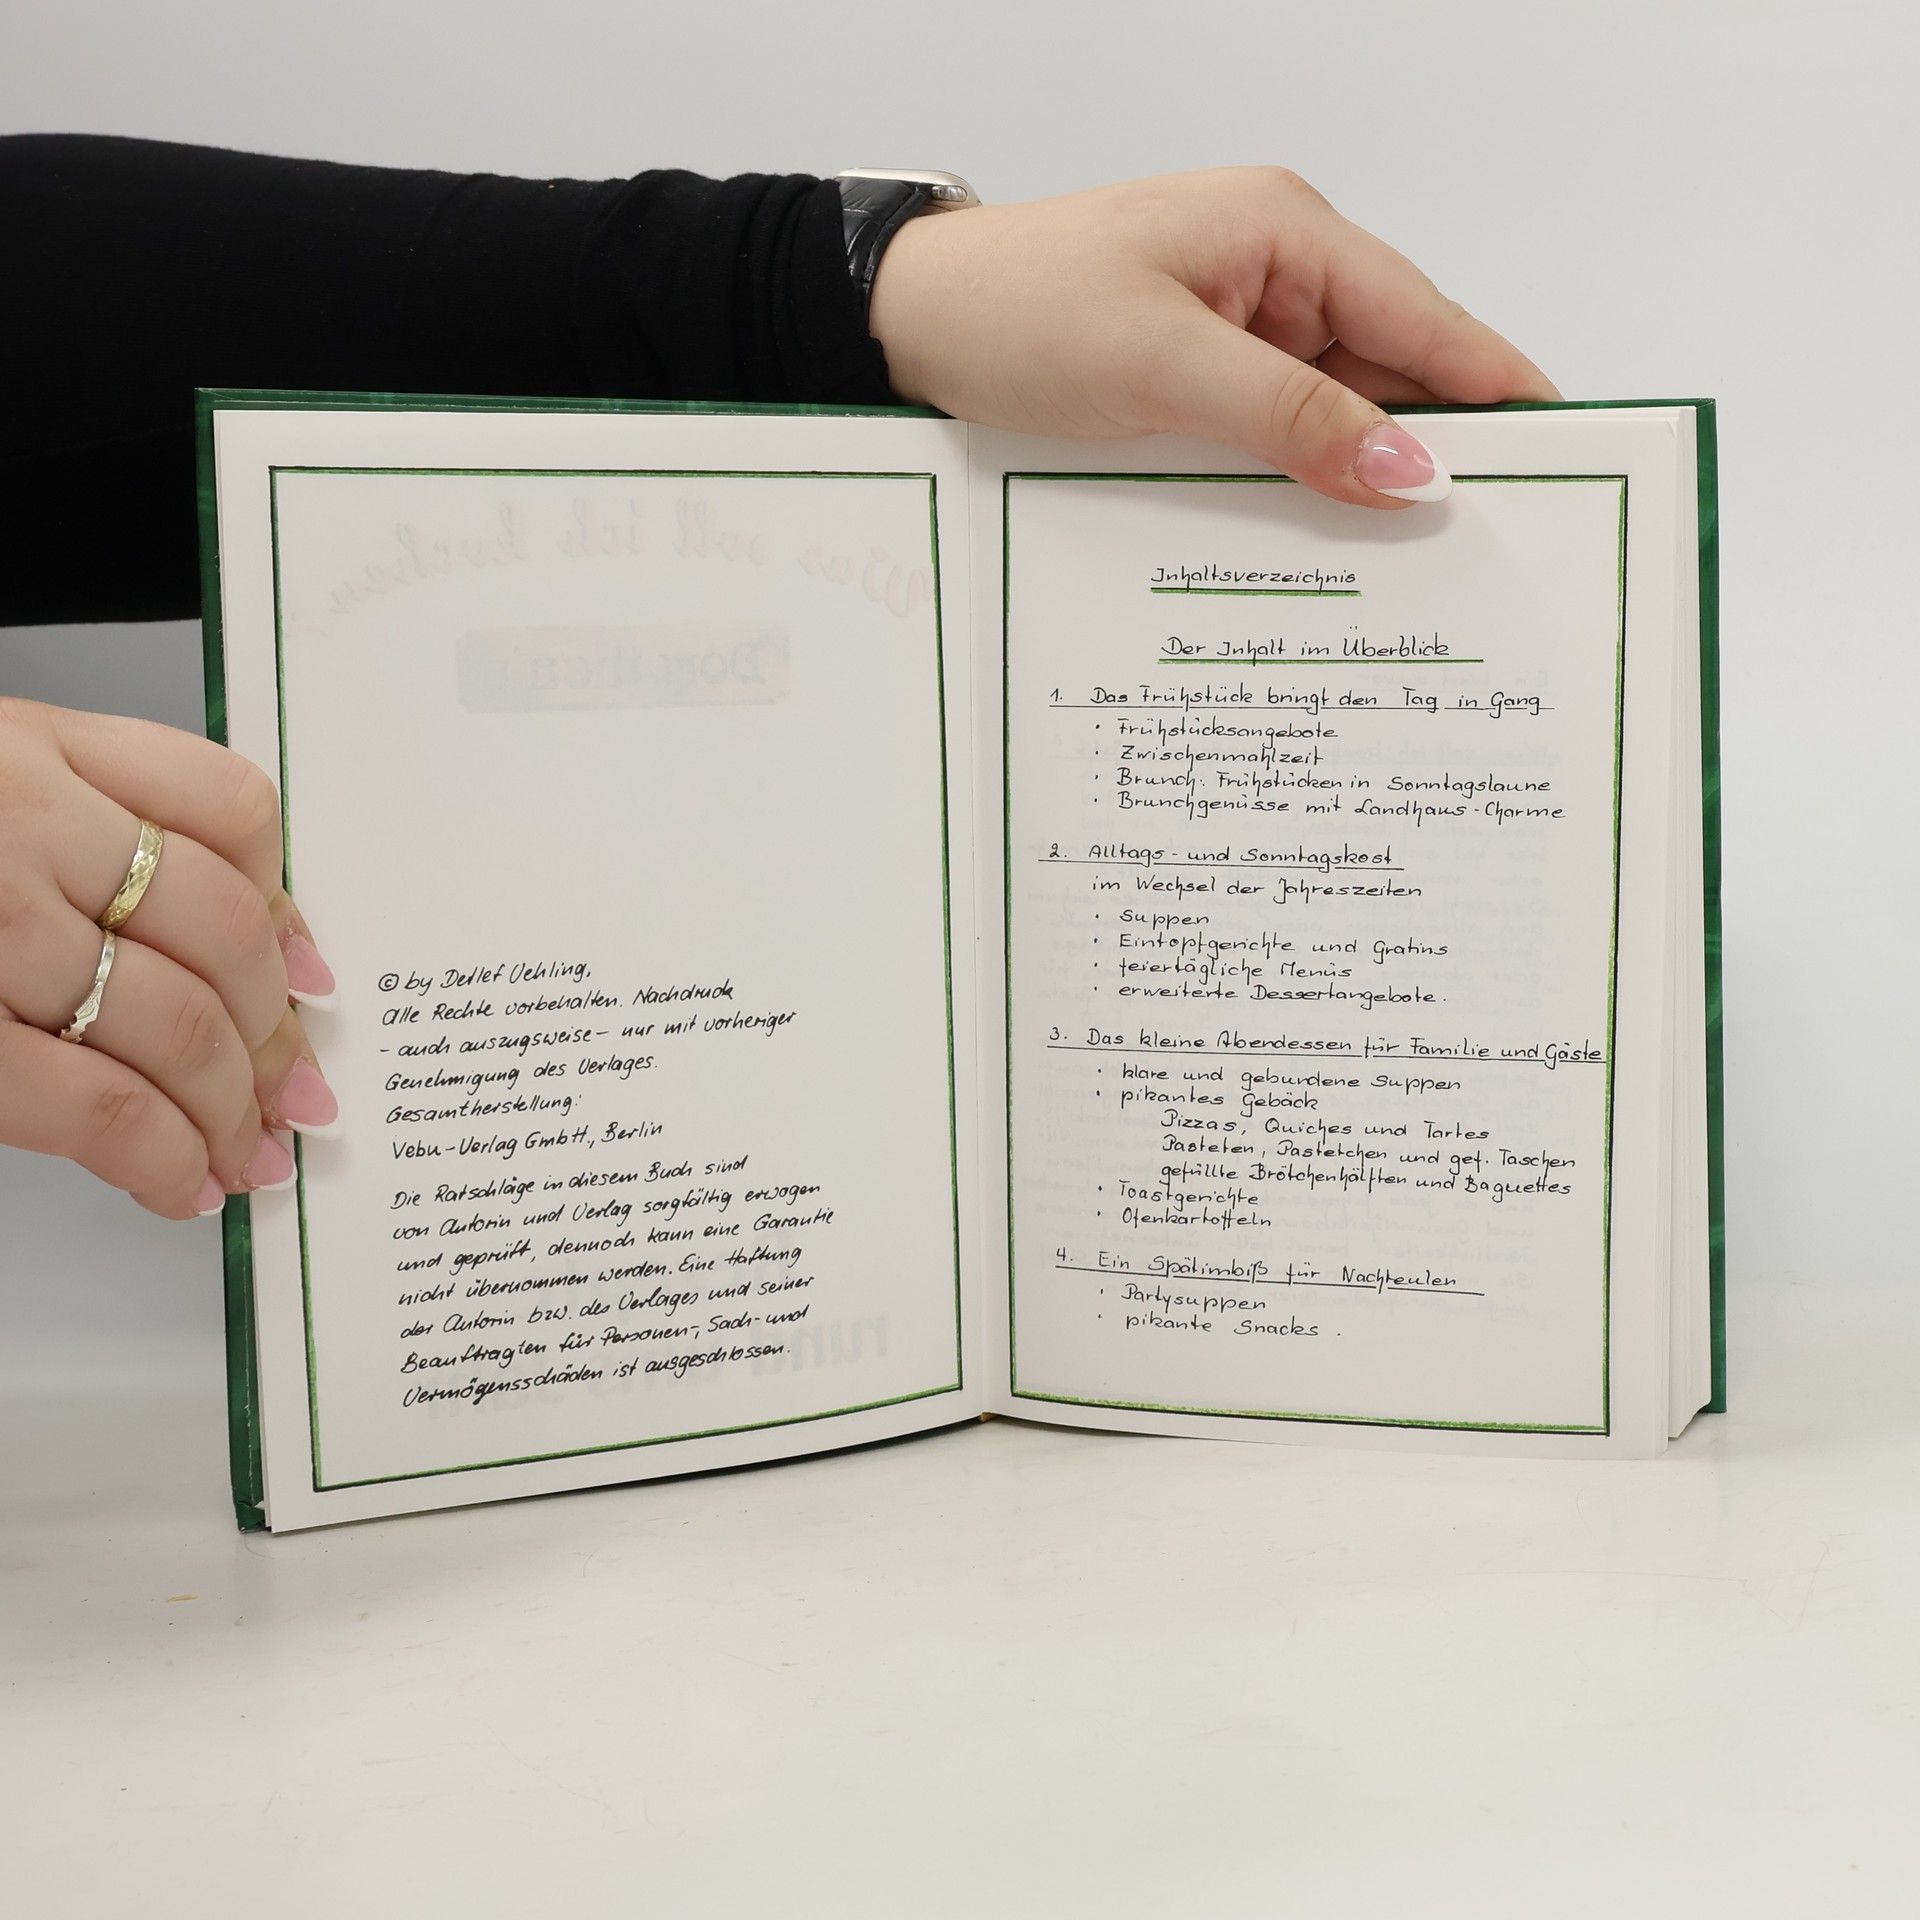 © by Detlef Uehling,
Alle Rechte vorbehalten. Nachdruck
- auch auszugsweise - nur mit vorheriger
Genehmigung des Verlages.
Gesamtherstellung:
Vebu-Verlag GmbH., Berlin
Die Ratschläge in diesem Buch sind
von Autorin und Verlag sorgfältig erwogen
und geprüft, dennoch kann eine Garantie
nicht übernommen werden. Eine Haftung
der Autorin bzw. des Verlages und seiner
Beauftragten für Personen-, Sach- und
Vermögensschäden ist ausgeschlossen.
Inhaltsverzeichnis
Der Inhalt im Überblick
1. Das Frühstück bringt den Tag in Gang
· Frühstücksangebote
· Zwischenmahlzeit
· Brunch: Frühstücken in Sonntagslaune
· Brunchgenüsse mit Landhaus-Charme
2. Alltags- und Sonntagskost
im Wechsel der Jahreszeiten
· Suppen
· Eintopfgerichte und Gratins
· feiertägliche Menüs
· erweiterte Dessertangebote.
3. Das kleine Abendessen für Familie und Gäste
· klare und gebundene Suppen
· pikantes Gebäck
Pizzas, Quiches und Tartes
Pasteten, Pastetchen und gef. Taschen
gefüllte Brötchenhälften und Baguettes
· Toastgerichte
· Ofenkartoffeln
4. Ein Spätimbiß für Nachteulen
· Partysuppen
· pikante Snacks.